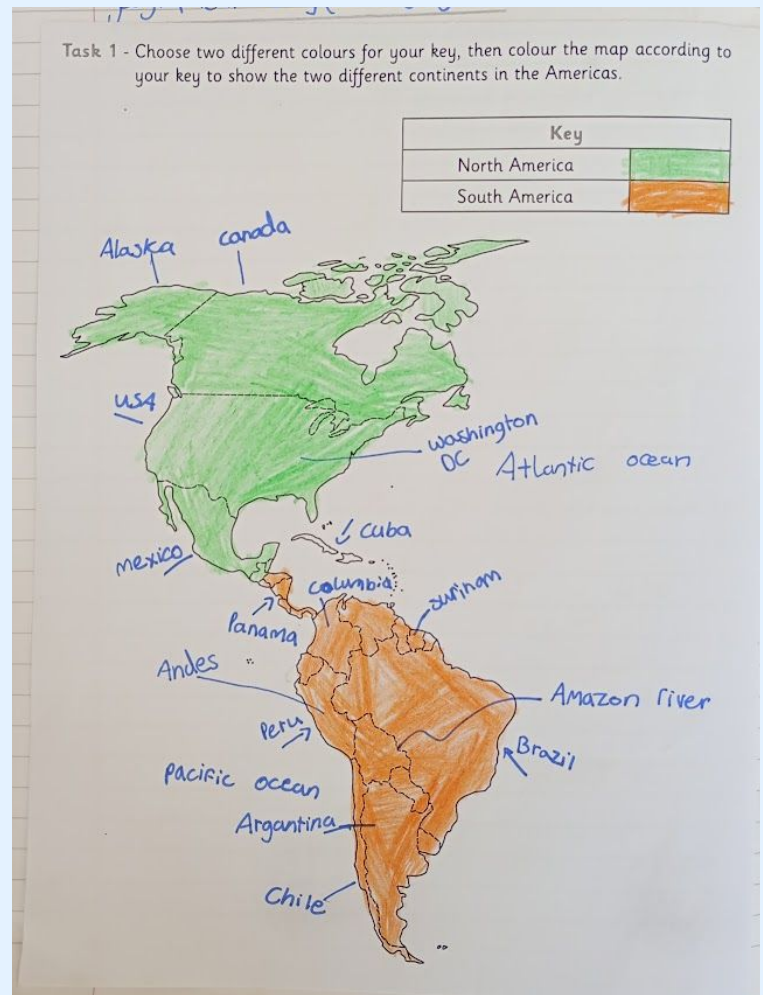 Task 1 - Choose two different colours for your key, then colour the map according to
your key to show the two different continents in the Americas.
Key
North America
South America
Alaska
canada
USA
washington
DC
Atlantic ocean
Cuba
mexico
columbia
surinam
Panama
Andes
Amazon river
Peru
Brazil
pacific ocean
Argantina
Chile